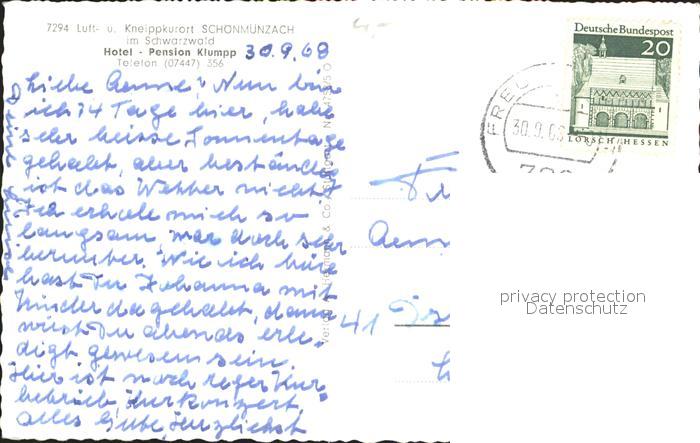 7294 Luft- u. Kneippkurort SCHÖNMÜNZACH
im Schwarzwald
Hotel - Pension Klumpp
Telefon (07447) 356
30.9.68
Liebe Aenne! Nun bin
ich 14 Tage hier, habe
sehr heisse Sonnentage
gehabt, aber beständig
ist das Wetter nicht.
Ich erhole mich so
langsam, war doch sehr
herunter. Wie ich höre
hast Du Johanna mit
Kinder da gehabt, dann
wirst Du abends erle-
digt gewesen sein.
Hier ist noch reger Kur-
betrieb, Kurkonzert,
alles Gute, herzlichst
Aenn
41
Deutsche Bundespost
20
LORSCH/HESSEN
30.9.68
privacy protection
Datenschutz